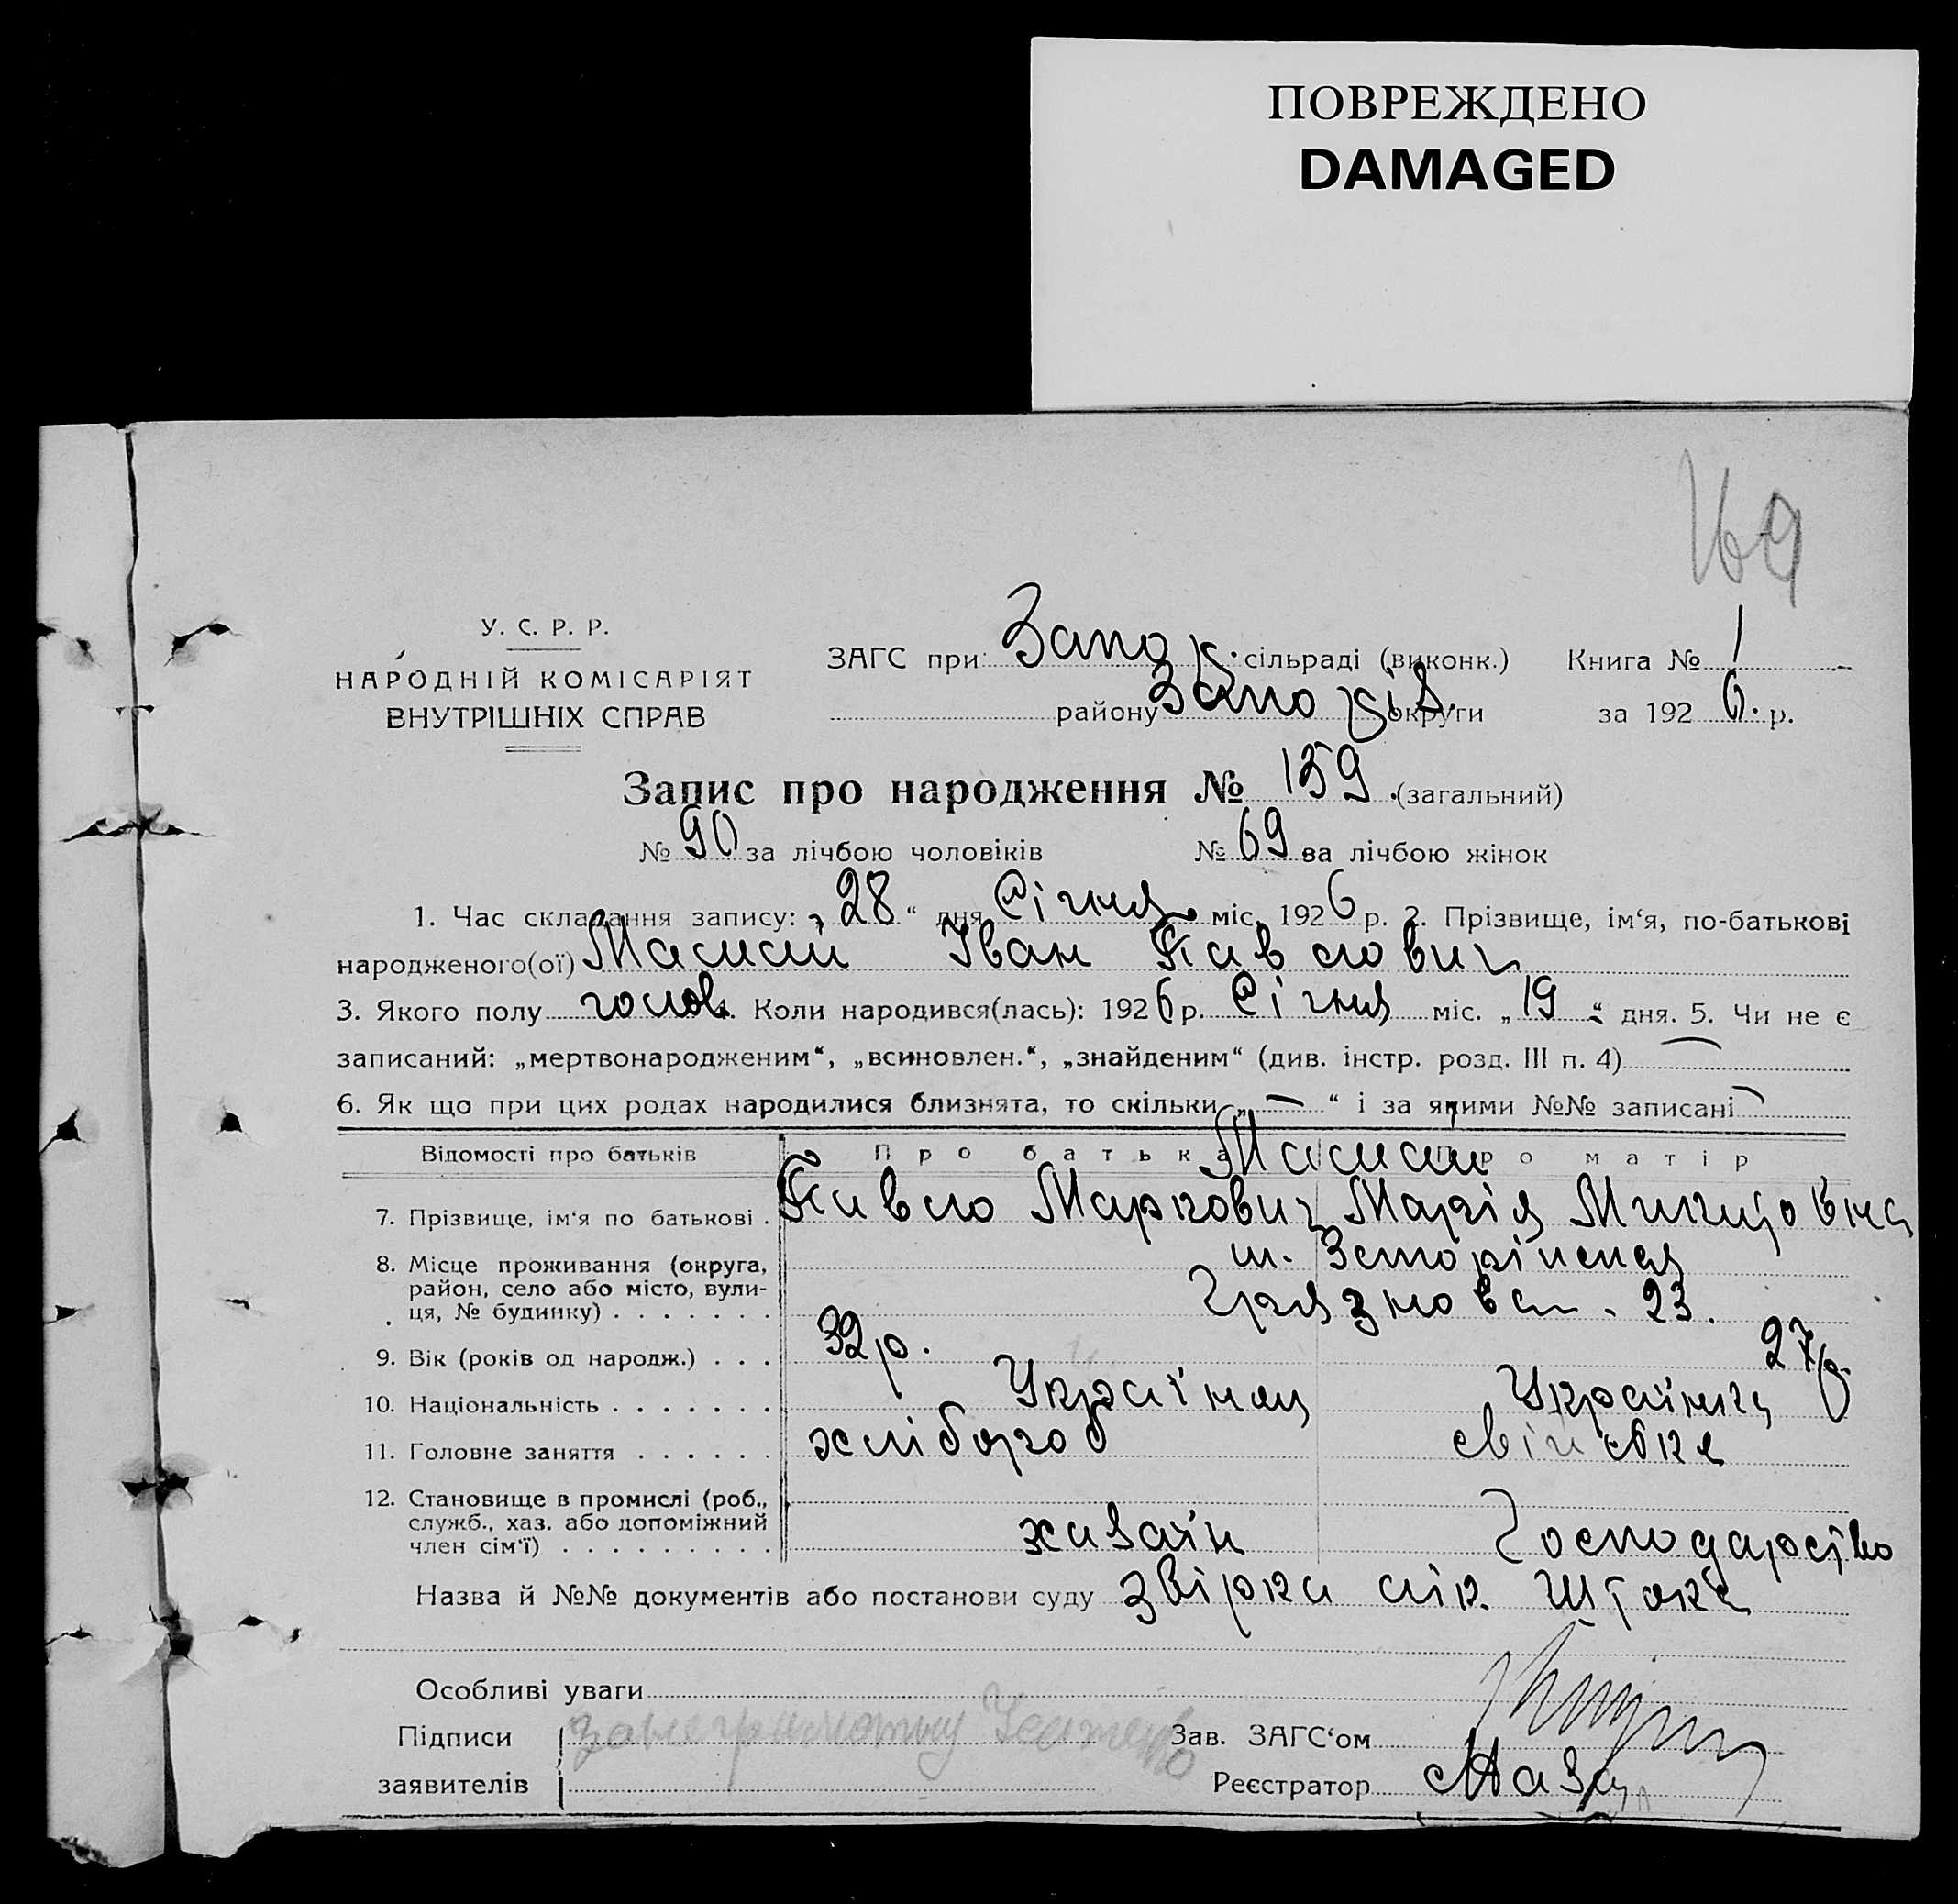 ПОВРЕЖДЕНО
DAMAGED
169
У. С. Р. Р.
НАРОДНІЙ КОМІСАРІЯТ
ВНУТРІШНІХ СПРАВ
ЗАГС при Запор. сільраді (виконк.) Книга № 1
району Запоріз. округи за 1926. р.
Запис про народження № 159. (загальний)
№ 90 за лічбою чоловіків № 69 за лічбою жінок
1. Час складання запису: „28“ дня Січня міс. 1926 р. 2. Прізвище, ім‘я, по-батькові
народженого(ої) Мамай Іван Павлович
3. Якого полу чолов. 4. Коли народився(лась): 1926 р. Січня міс. „19“ дня. 5. Чи не є
записаний: „мертвонародженим“, „всиновлен.“, „знайденим“ (див. інстр. розд. III п. 4) —
6. Як що при цих родах народилися близнята, то скільки „—“ і за якими №№ записані —
Відомості про батьків Про батька Про матір
Мамай
7. Прізвище, ім‘я по батькові . Павло Маркович Марія
8. Місце проживання (округа, район, село або місто, вулиця, № будинку) . . . . . . . м. Запоріжжя
Грязнова. 23.
9. Вік (років од народж.) . . . 32 р. 27 р.
10. Національність . . . . . . . Українець Українка
11. Головне заняття . . . . . . хлібороб
12. Становище в промислі (роб., служб., хаз. або допоміжний член сім‘ї) . . . . . . . . . хазаїн Господарство
Назва й №№ документів або постанови суду звірка лік.
Особливі уваги
Підписи
заявителів
за неграмотну
Зав. ЗАГС‘ом
Реєстратор